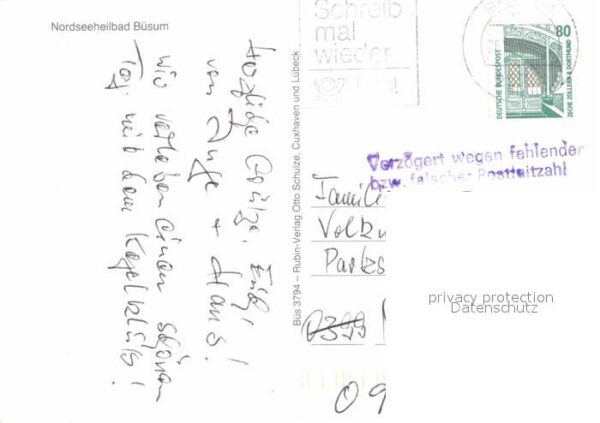 Nordseeheilbad Büsum
Wir verleben einen schönen
Tag mit dem Kegelklub!
Herzliche Grüße, Euch!
von Inge + Hans!
Büs 3794 – Rubin-Verlag Otto Schulze, Cuxhaven und Lübeck
Schreib
mal
wieder
80
DEUTSCHE BUNDESPOST
ZECHE ZOLLERN II, DORTMUND
Verzögert wegen fehlender
bzw. falscher Postleitzahl
Famili
Volkm
Parks
0399
09
privacy protection
Datenschutz